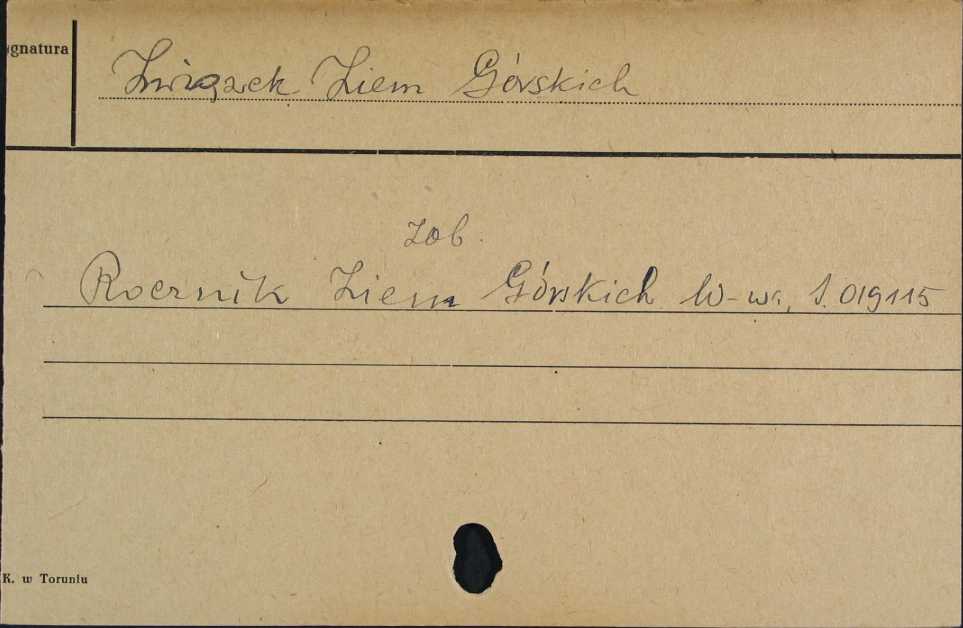 ygnatura
Związek Ziem Górskich
zob.
Rocznik Ziem Górskich W-wa, S. 019115
K. w Toruniu